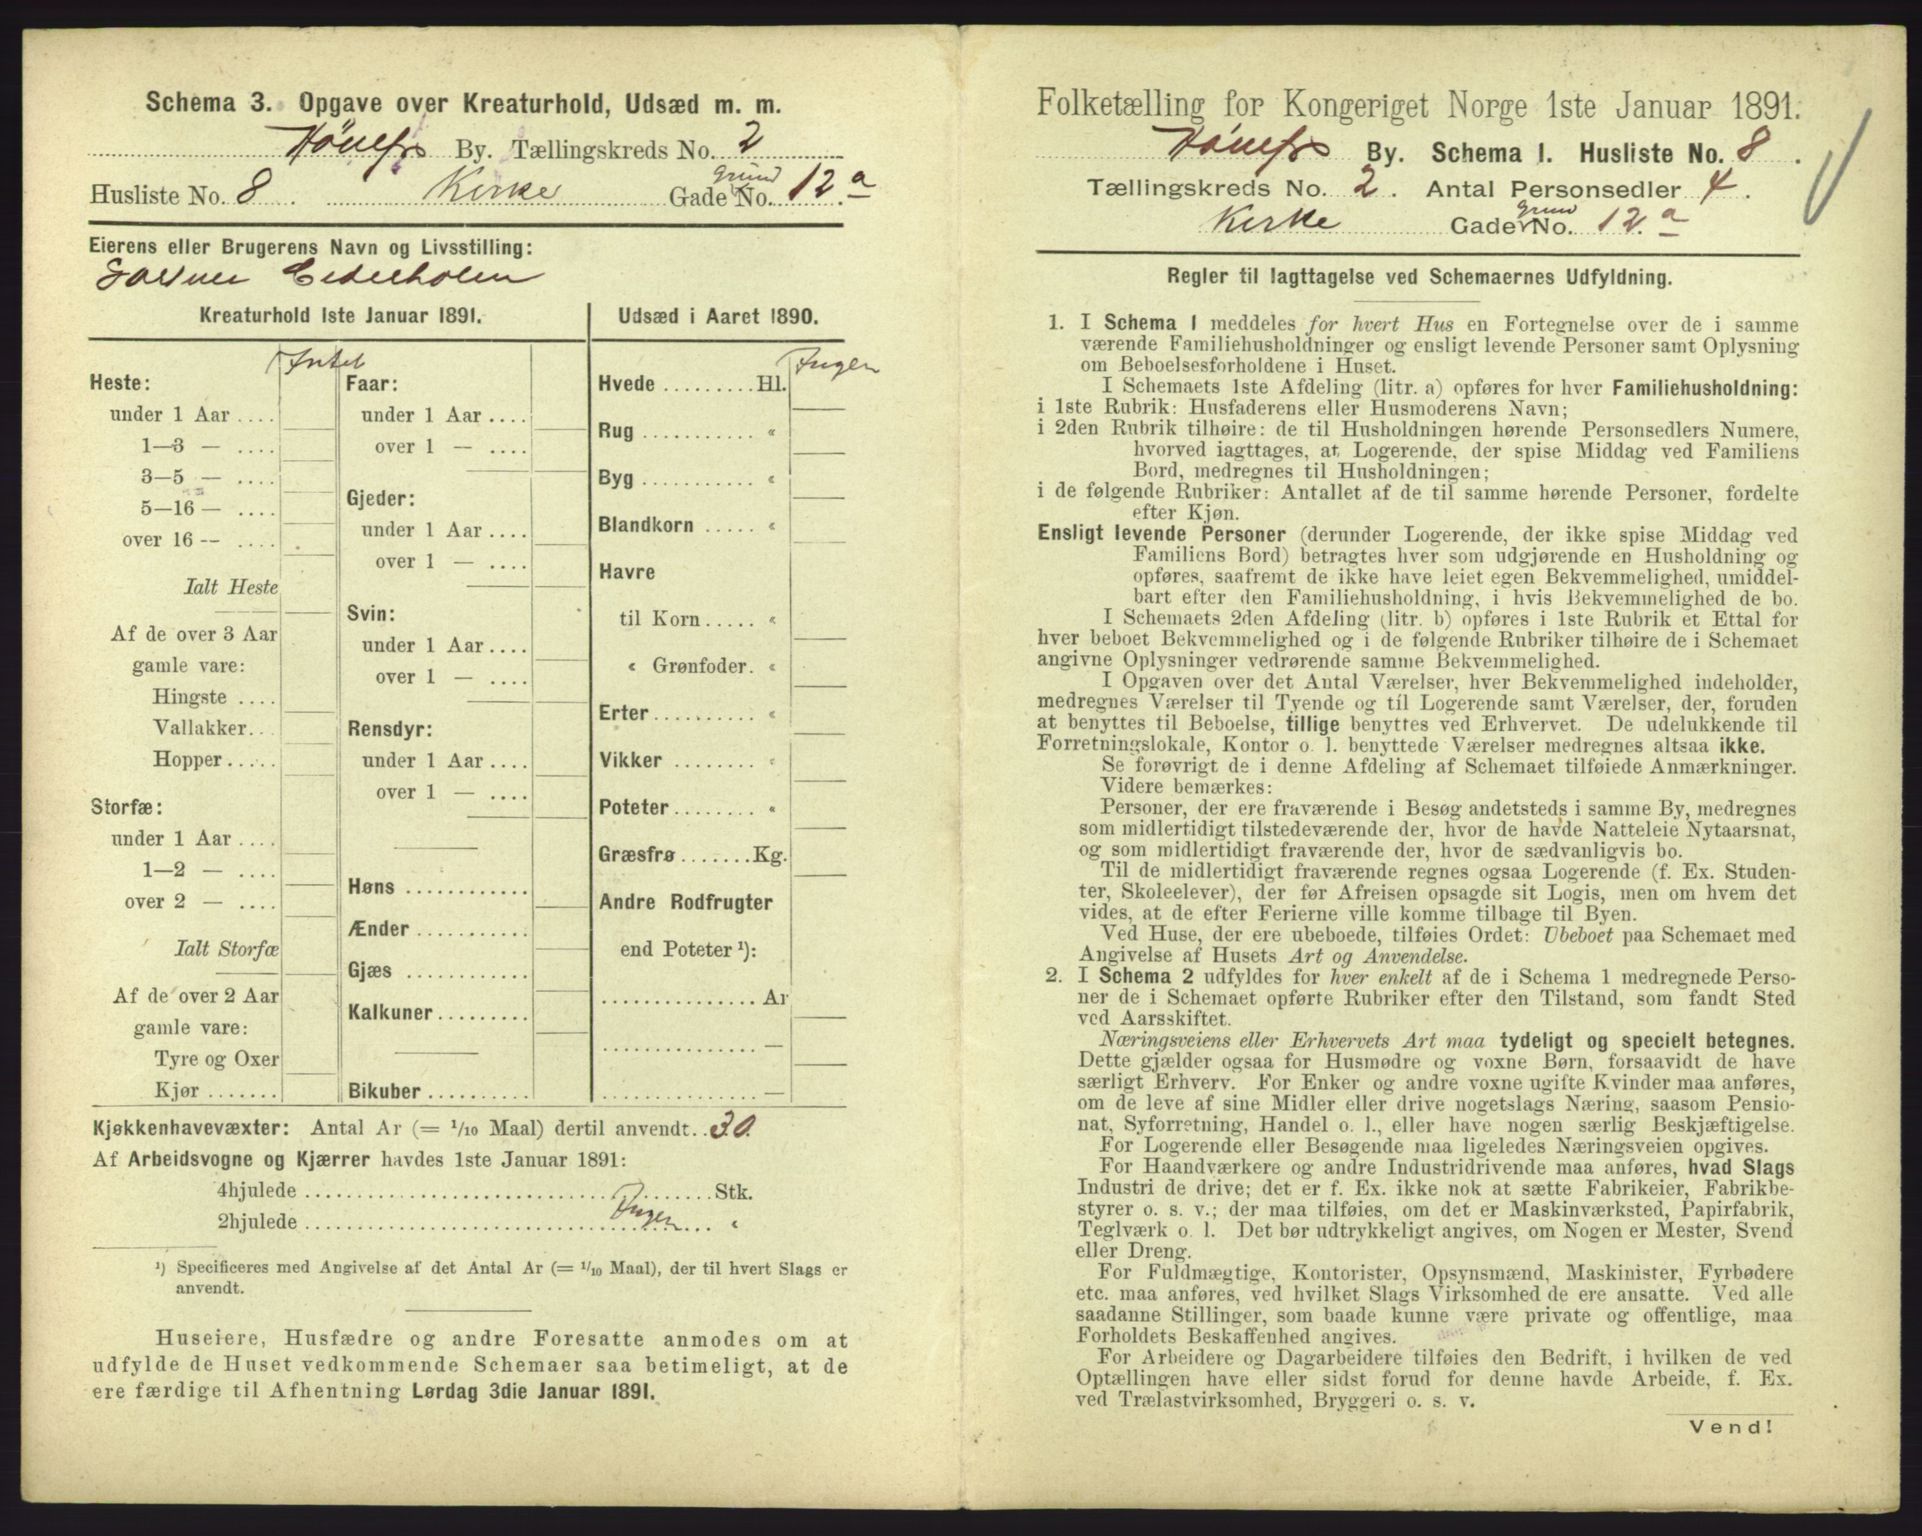 Schema 3. Opgave over Kreaturhold, Udsæd m. m.
Hønefos By. Tællingskreds No. 2
Husliste No. 8. Kirke Gade Grund No. 12.a
Eierens eller Brugerens Navn og Livsstilling:
Cederholm
Kreaturhold 1ste Januar 1891.
Intet
Heste:
under 1 Aar ....
1—3 — ....
3—5 — ....
5—16 — ....
over 16 — ....
Ialt Heste
Af de over 3 Aar
gamle vare:
Hingste ....
Vallakker....
Hopper .....
Storfæ:
under 1 Aar ....
1—2 — ....
over 2 — ....
Ialt Storfæ
Af de over 2 Aar
gamle vare:
Tyre og Oxer
Kjør .......
Faar:
under 1 Aar ....
over 1 — ....
Gjeder:
under 1 Aar ....
over 1 — ....
Svin:
under 1 Aar ....
over 1 — ....
Rensdyr:
under 1 Aar ....
over 1 — ....
Høns ............
Ænder ...........
Gjæs ............
Kalkuner.........
Bikuber ..........
Udsæd i Aaret 1890.
Ingen
Hvede ......... Hl.
Rug ........... «
Byg ........... «
Blandkorn ..... «
Havre
til Korn ..... «
« Grønfoder. «
Erter.......... «
Vikker ........ «
Poteter........ «
Græsfrø ....... Kg.
Andre Rodfrugter
end Poteter ¹):
............... Ar
............... —
............... —
Kjøkkenhavevæxter: Antal Ar (= 1/10 Maal) dertil anvendt.. 30.
Af Arbeidsvogne og Kjærrer havdes 1ste Januar 1891:
4hjulede .................... Stk.
2hjulede .................... Ingen «
¹) Specificeres med Angivelse af det Antal Ar (= 1/10 Maal), der til hvert Slags er
anvendt.
Huseiere, Husfædre og andre Foresatte anmodes om at
udfylde de Huset vedkommende Schemaer saa betimeligt, at de
ere færdige til Afhentning Lørdag 3die Januar 1891.
Folketælling for Kongeriget Norge 1ste Januar 1891.
Hønefos By. Schema 1. Husliste No. 8.
Tællingskreds No. 2. Antal Personsedler 4.
Kirke Gade Grund No. 12.a
Regler til Iagttagelse ved Schemaernes Udfyldning.
1. I Schema 1 meddeles for hvert Hus en Fortegnelse over de i samme
værende Familiehusholdninger og ensligt levende Personer samt Oplysning
om Beboelsesforholdene i Huset.
I Schemaets 1ste Afdeling (litr. a) opføres for hver Familiehusholdning:
i 1ste Rubrik: Husfaderens eller Husmoderens Navn;
i 2den Rubrik tilhøire: de til Husholdningen hørende Personsedlers Numere,
hvorved iagttages, at Logerende, der spise Middag ved Familiens
Bord, medregnes til Husholdningen;
i de følgende Rubriker: Antallet af de til samme hørende Personer, fordelte
efter Kjøn.
Ensligt levende Personer (derunder Logerende, der ikke spise Middag ved
Familiens Bord) betragtes hver som udgjørende en Husholdning og
opføres, saafremt de ikke have leiet egen Bekvemmelighed, umiddel-
bart efter den Familiehusholdning, i hvis Bekvemmelighed de bo.
I Schemaets 2den Afdeling (litr. b) opføres i 1ste Rubrik et Ettal for
hver beboet Bekvemmelighed og i de følgende Rubriker tilhøire de i Schemaet
angivne Oplysninger vedrørende samme Bekvemmelighed.
I Opgaven over det Antal Værelser, hver Bekvemmelighed indeholder,
medregnes Værelser til Tyende og til Logerende samt Værelser, der, foruden
at benyttes til Beboelse, tillige benyttes ved Erhvervet. De udelukkende til
Forretningslokale, Kontor o. l. benyttede Værelser medregnes altsaa ikke.
Se forøvrigt de i denne Afdeling af Schemaet tilføiede Anmærkninger.
Videre bemærkes:
Personer, der ere fraværende i Besøg andetsteds i samme By, medregnes
som midlertidigt tilstedeværende der, hvor de havde Natteleie Nytaarsnat,
og som midlertidigt fraværende der, hvor de sædvanligvis bo.
Til de midlertidigt fraværende regnes ogsaa Logerende (f. Ex. Studen-
ter, Skoleelever), der før Afreisen opsagde sit Logis, men om hvem det
vides, at de efter Ferierne ville komme tilbage til Byen.
Ved Huse, der ere ubeboede, tilføies Ordet: Ubeboet paa Schemaet med
Angivelse af Husets Art og Anvendelse.
2. I Schema 2 udfyldes for hver enkelt af de i Schema 1 medregnede Perso-
ner de i Schemaet opførte Rubriker efter den Tilstand, som fandt Sted
ved Aarsskiftet.
Næringsveiens eller Erhvervets Art maa tydeligt og specielt betegnes.
Dette gjælder ogsaa for Husmødre og voxne Børn, forsaavidt de have
særligt Erhverv. For Enker og andre voxne ugifte Kvinder maa anføres,
om de leve af sine Midler eller drive nogetslags Næring, saasom Pensio-
nat, Syforretning, Handel o. l., eller have nogen særlig Beskjæftigelse.
For Logerende eller Besøgende maa ligeledes Næringsveien opgives.
For Haandværkere og andre Industridrivende maa anføres, hvad Slags
Industri de drive; det er f. Ex. ikke nok at sætte Fabrikeier, Fabrikbe-
styrer o. s. v.; der maa tilføies, om det er Maskinværksted, Papirfabrik,
Teglværk o. l. Det bør udtrykkeligt angives, om Nogen er Mester, Svend
eller Dreng.
For Fuldmægtige, Kontorister, Opsynsmænd, Maskinister, Fyrbødere
etc. maa anføres, ved hvilket Slags Virksomhed de ere ansatte. Ved alle
saadanne Stillinger, som baade kunne være private og offentlige, maa
Forholdets Beskaffenhed angives.
For Arbeidere og Dagarbeidere tilføies den Bedrift, i hvilken de ved
Optællingen have eller sidst forud for denne havde Arbeide, f. Ex.
ved Trælastvirksomhed, Bryggeri o. s. v.
Vend!